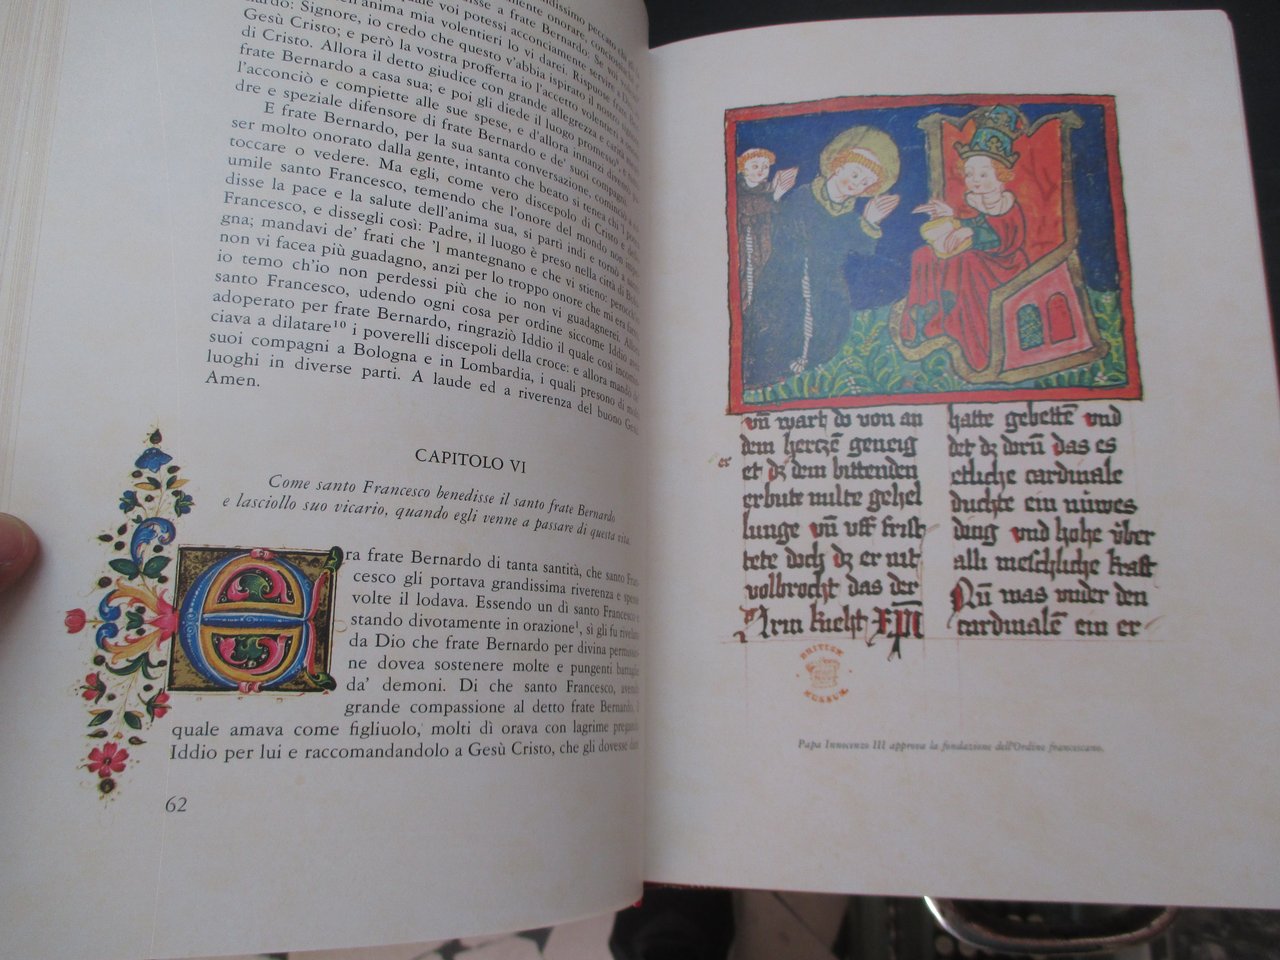 dissimo peccato
onorare,
quale voi potessi acconciamente servire a
nardo: Signore, disse a frate Bernardo: Se voi
dell'anima mia volentieri lo vi darei. Rispuose frate
Gesù Cristo; io credo che questo v'abbia ispirato il nostro
di Cristo. Allora il detto giudice con grande allegrezza e carità
frate Bernardo a casa sua; e poi gli diede il luogo promesso, e
l'acconciò e compiette alle sue spese, e d'allora innanzi
dre e speziale difensore di frate Bernardo e de' suoi compagni.
E frate Bernardo, per la sua santa conversazione, cominciò a
ser molto onorato dalla gente, intanto che beato si tenea chi 'l
toccare o vedere. Ma egli, come vero discepolo di Cristo e
umile santo Francesco, temendo che l'onore del mondo non
disse la pace e la salute dell'anima sua, si partì indi e tornò a
Francesco, e dissegli così: Padre, il luogo è preso nella città di
gna; mandavi de' frati che 'l mantegnano e che vi stieno: però
non vi facea più guadagno, anzi per lo troppo onore che mi era
io temo ch'io non perdessi più che io non vi guadagnerei.
santo Francesco, udendo ogni cosa per ordine siccome Iddio
adoperato per frate Bernardo, ringraziò Iddio il quale così
ciava a dilatare¹⁰ i poverelli discepoli della croce: e allora mandò
suoi compagni a Bologna e in Lombardia, i quali presono di
luoghi in diverse parti. A laude ed a riverenza del buono
Amen.
CAPITOLO VI
Come santo Francesco benedisse il santo frate Bernardo
e lasciollo suo vicario, quando egli venne a passare di questa vita.
Era frate Bernardo di tanta santità, che santo
cesco gli portava grandissima riverenza e
volte il lodava. Essendo un dì santo Francesco
stando divotamente in orazione¹, sì gli fu
da Dio che frate Bernardo per divina
ne dovea sostenere molte e pungenti battaglie
da' demoni. Di che santo Francesco,
grande compassione al detto frate Bernardo, il
quale amava come figliuolo, molti dì orava con lagrime
Iddio per lui e raccomandolo a Gesù Cristo, che gli dovesse
62
vn̄ wart do von an
dem hertzē geneig
er
et dz dem bittenden
erbute milte gehel
lunge vn̄ vff frist
tete doch dz er nit
volbrocht das der
Arm
hatte gebettē vnd
det dz dorū das es
etliche cardinale
duchte ein nùwes
ding vnd hohe ùber
alli mēschliche kraft
Nū was vnder den
cardinalē ein er
BRITISH
MUSEUM
Papa Innocenzo III approva la fondazione dell'Ordine francescano.